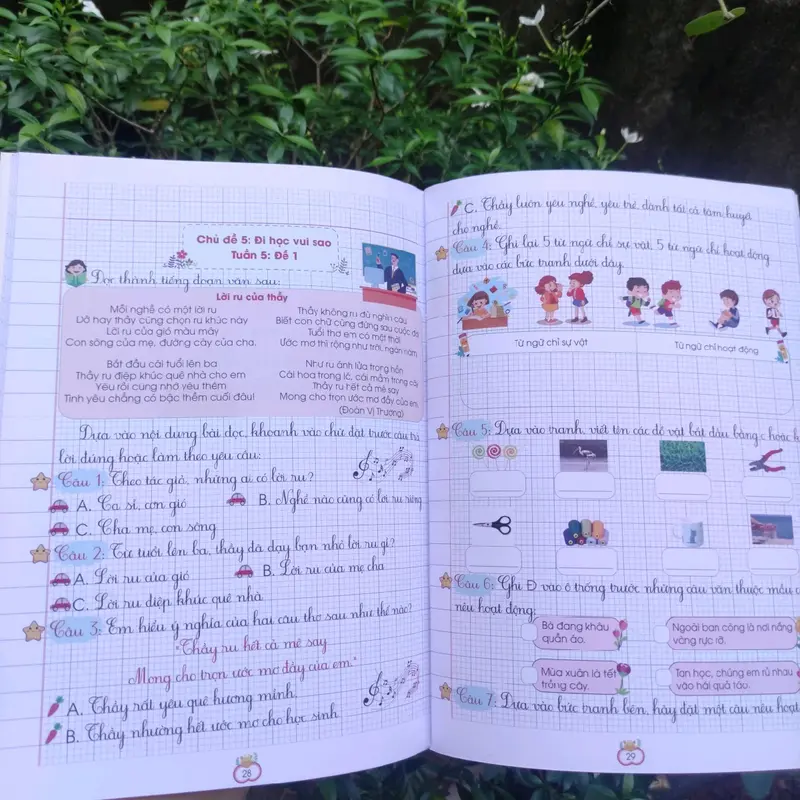 Chủ đề 5: Đi học vui sao
Tuần 5: Đề 1
Đọc thành tiếng đoạn văn sau:
Lời ru của thầy
Mỗi nghề có một lời ru
Dở hay thầy cũng chọn ru khúc này
Lời ru của gió màu mây
Con sông của mẹ, đường cày của cha.
Bắt đầu cái tuổi lên ba
Thầy ru điệp khúc quê nhà cho em
Yêu rồi cũng nhớ yêu thêm
Tình yêu chẳng có bậc thềm cuối đâu!
Thầy không ru đủ nghìn câu
Biết con chữ cũng đứng sau cuộc đời
Tuổi thơ em có một thời
Ước mơ thì rộng như trời, ngàn năm.
Như ru ánh lửa trong hồn
Cái hoa trong lá, cái mầm trong cây
Thầy ru hết cả mê say
Mong cho trọn ước mơ đầy của em.
(Đoàn Vị Thượng)
Dựa vào nội dung bài đọc, khoanh vào chữ đặt trước câu trả
lời đúng hoặc làm theo yêu cầu:
Câu 1: Theo tác giả, những ai có lời ru?
A. Ca sĩ, cơn gió
B. Nghề nào cũng có lời ru riêng
C. Cha mẹ, con sông
Câu 2: Từ tuổi lên ba, thầy đã dạy bạn nhỏ lời ru gì?
A. Lời ru của gió
B. Lời ru của mẹ cha
C. Lời ru điệp khúc quê nhà
Câu 3: Em hiểu ý nghĩa của hai câu thơ sau như thế nào?
"Thầy ru hết cả mê say
Mong cho trọn ước mơ đầy của em."
A. Thầy rất yêu quê hương mình.
B. Thầy nhường hết ước mơ cho học sinh
28
C. Thầy luôn yêu nghề, yêu trẻ, dành tất cả tâm huyết
cho nghề.
Câu 4: Ghi lại 5 từ ngữ chỉ sự vật, 5 từ ngữ chỉ hoạt động
dựa vào các bức tranh dưới đây.
Từ ngữ chỉ sự vật
Từ ngữ chỉ hoạt động
Câu 5: Dựa vào tranh, viết tên các đồ vật bắt đầu bằng c hoặc k
Câu 6: Ghi Đ vào ô trống trước những câu văn thuộc mẫu c
nêu hoạt động:
Bà đang khâu
quần áo.
Ngoài ban công là nơi nắng
vàng rực rỡ.
Mùa xuân là tết
trồng cây.
Tan học, chúng em rủ nhau
vào hái quả táo.
Câu 7: Dựa vào bức tranh bên, hãy đặt một câu nêu hoạt
29